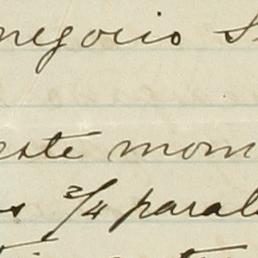 negocio
este mom
s 3/4 paral